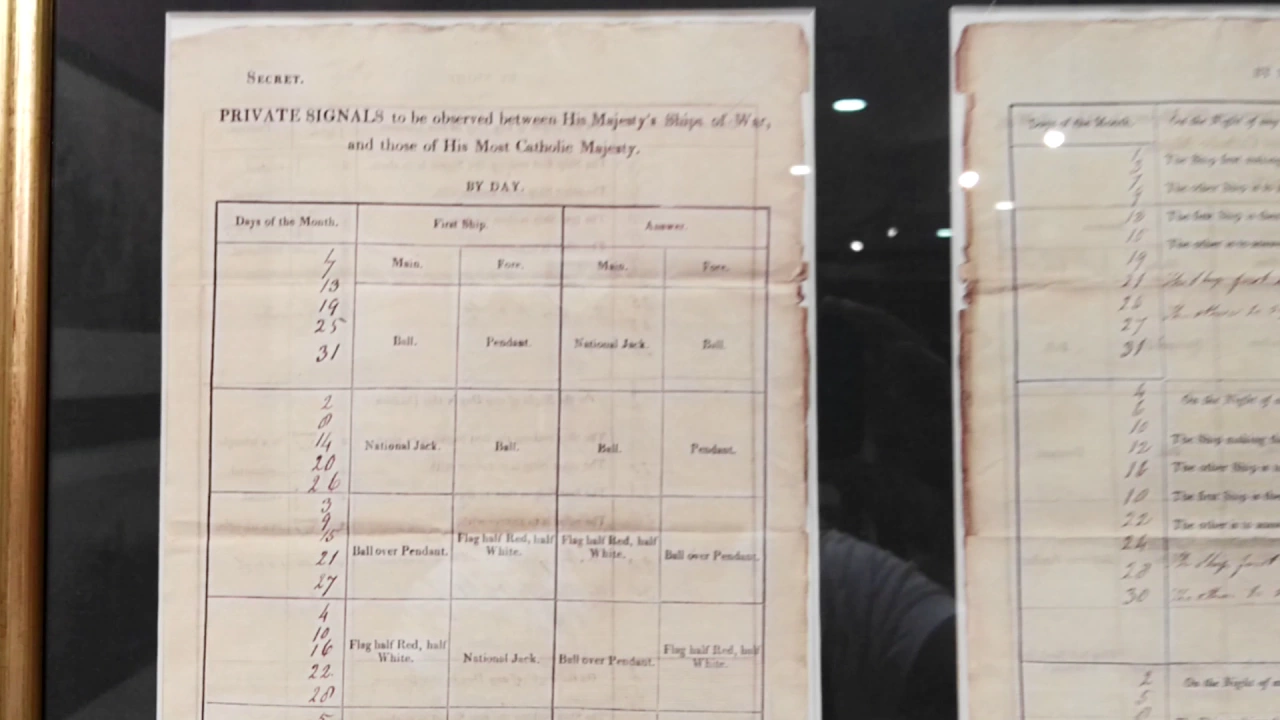 SECRET.
PRIVATE SIGNALS to be observed between His Majesty's Ships of War,
and those of His Most Catholic Majesty.
BY DAY.
Days of the Month. First Ship. Answer.
Main. Fore. Main. Fore.
7
13
19
25
31
Ball. Pendant. National Jack. Ball.
2
8
14
20
26
National Jack. Ball. Ball. Pendant.
3
9
15
21
27
Ball over Pendant. Flag half Red, half White. Flag half Red, half White. Ball over Pendant.
4
10
16
22
28
Flag half Red, half White. National Jack. Ball over Pendant. Flag half Red, half White.
5
Days of the Month. On the Night of any
1
3
7
9
13
15
19
21
27
31
The other Ship is to
The other is to
4
6
10
12
16
22
24
28
30
On the Night of
The Ship making
The other Ship is
The other is to
2
5
On the Night of